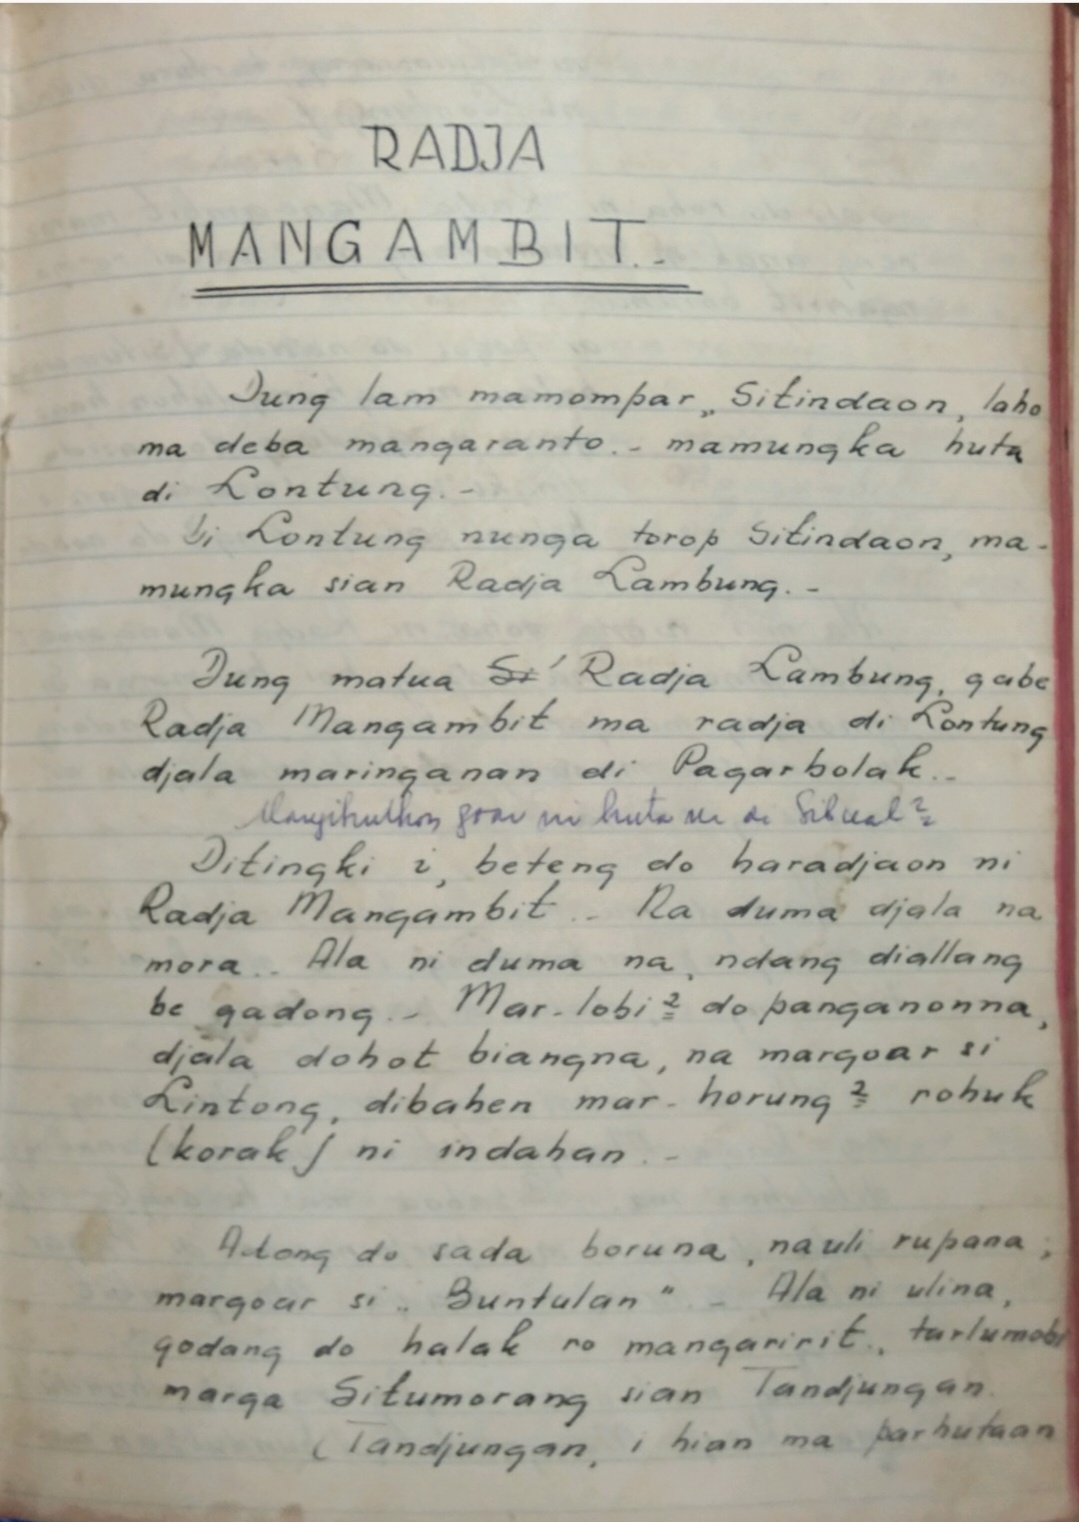 RADJA
MANGAMBIT.-
Dung lam mamompar „ Sitindaon, laho
ma deba mangaranto.- mamungka huta
di Lontung.-
Di Lontung nunga torop Sitindaon, ma-
mungka sian Radja Lambung.-
Dung matua Si Radja Lambung, gabe
Radja Mangambit ma radja di Lontung
djala maringanan di Pagarbolak..-
goar ni huta
Ditingki i, beteng do haradjaon ni
Radja Mangambit.- Na duma djala na
mora.. Ala ni duma na, ndang diallang
be gadong.- Mar-lobi² do panganonna,
djala dohot biangna, na margoar si
Lintong, dibahen mar-horung² rohuk
(korak) ni indahan.-
Adong do sada boruna, na uli rupana;
margoar si „ Buntulan".- Ala ni ulina,
godang do halak ro mangaririt., tarlumobi
marga Situmorang sian Tandjungan.
(Tandjungan, i hian ma parhutaan